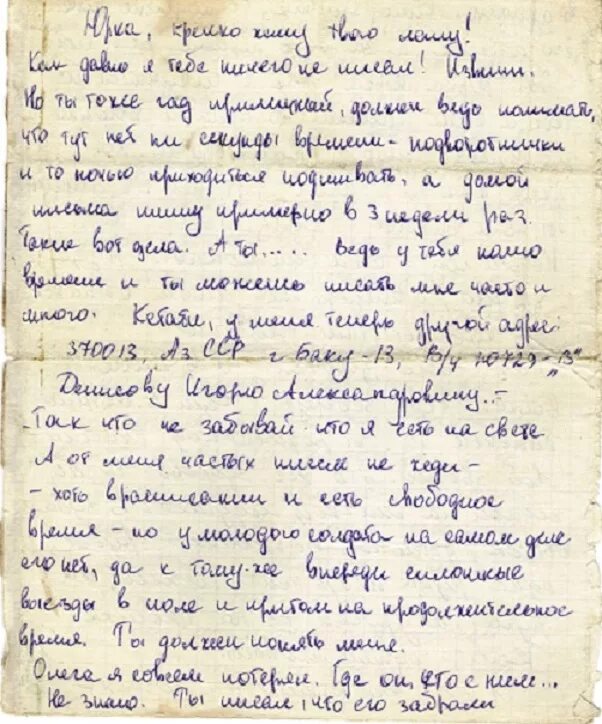 Юрка, крепко жму твою лапу!
Как давно я тебе ничего не писал! Извини.
Но ты тоже гад приличный, должен ведь понимать,
что тут нет ни секунды времени - подворотнички
и то ночью приходиться подшивать, а домой
письма пишу примерно в 3 недели раз.
Такие вот дела. А ты..... ведь у тебя
времени и ты можешь писать мне часто и
много. Кстати, у меня теперь другой адрес
370013, Аз ССР г. Баку-13, в/ч 10729 „В"
Денисову Игорю Александровичу. -
Так что не забывай что я есть на свете
А от меня частых писем не жди -
- хоть в расписании и есть свободное
время - но у молодого солдата на самом деле
его нет, да к тому-же впереди сплошные
выезды в поле и притом на продолжительное
время. Ты должен понять меня.
Олега я совсем потерял. Где он, что с ним...
Не знаю. Ты писал, что его забрали